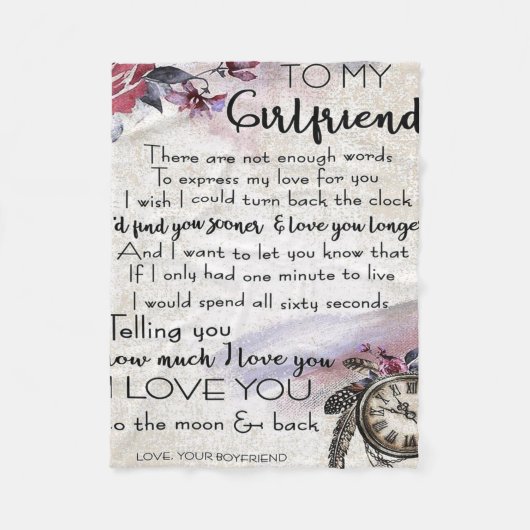 TO MY
Girlfriend
There are not enough words
To express my love for you
I wish I could turn back the clock
'd find you sooner & love you longe
And I want to let you know that
If I only had one minute to live
I would spend all sixty seconds
Telling you
how much I love you
I LOVE YOU
to the moon & back
LOVE, YOUR BOYFRIEND